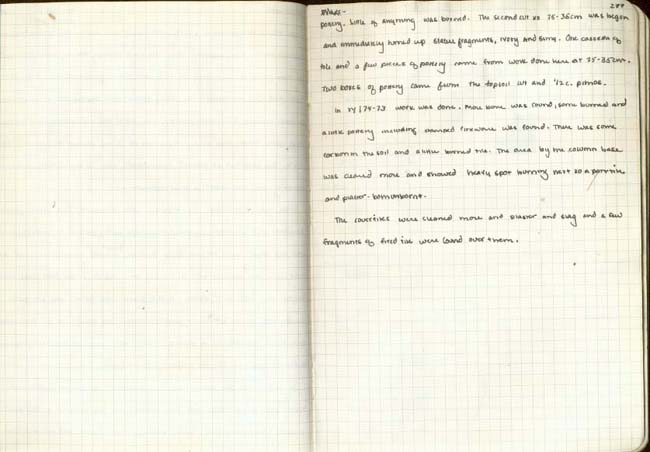 277
pottery. Little of anything was burned. The second cut at 75-35cm was begun
and immediately turned up statue fragments, ivory and bone. One casseta of
tile and a few pieces of pottery came from work done here at 75-35cm.
Two boxes of pottery came from the topsoil cut and
In ry 174-73 work was done. More bone was found, some burned and
a little pottery including stamped fineware was found. There was some
carbon in the soil and a little burned tile. The area by the column base
was cleaned more and showed heavy spot burning next to a pan tile
and plaster - both unburnt.
The were cleaned more and plaster and slag and a few
fragments of fired tile were found over them.